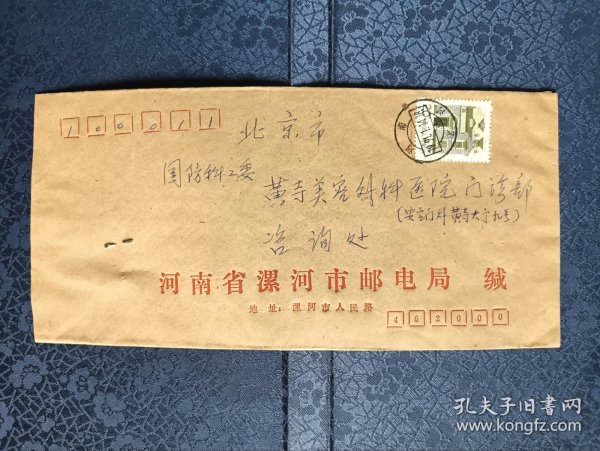 100011
北京市
国防科工委
黄寺美容外科医院门诊部
(安定门外黄寺大街九号)
咨询处
河南省漯河市邮电局 缄
地址：漯河市人民路
462000
孔夫子旧书网
www.kongfz.com